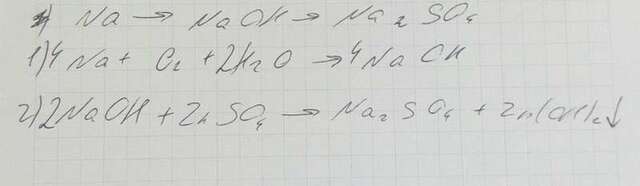 Na → NaOH → Na₂SO₄
1) 4Na + O₂ + 2H₂O → 4NaOH
2) 2NaOH + ZnSO₄ → Na₂SO₄ + Zn(OH)₂↓